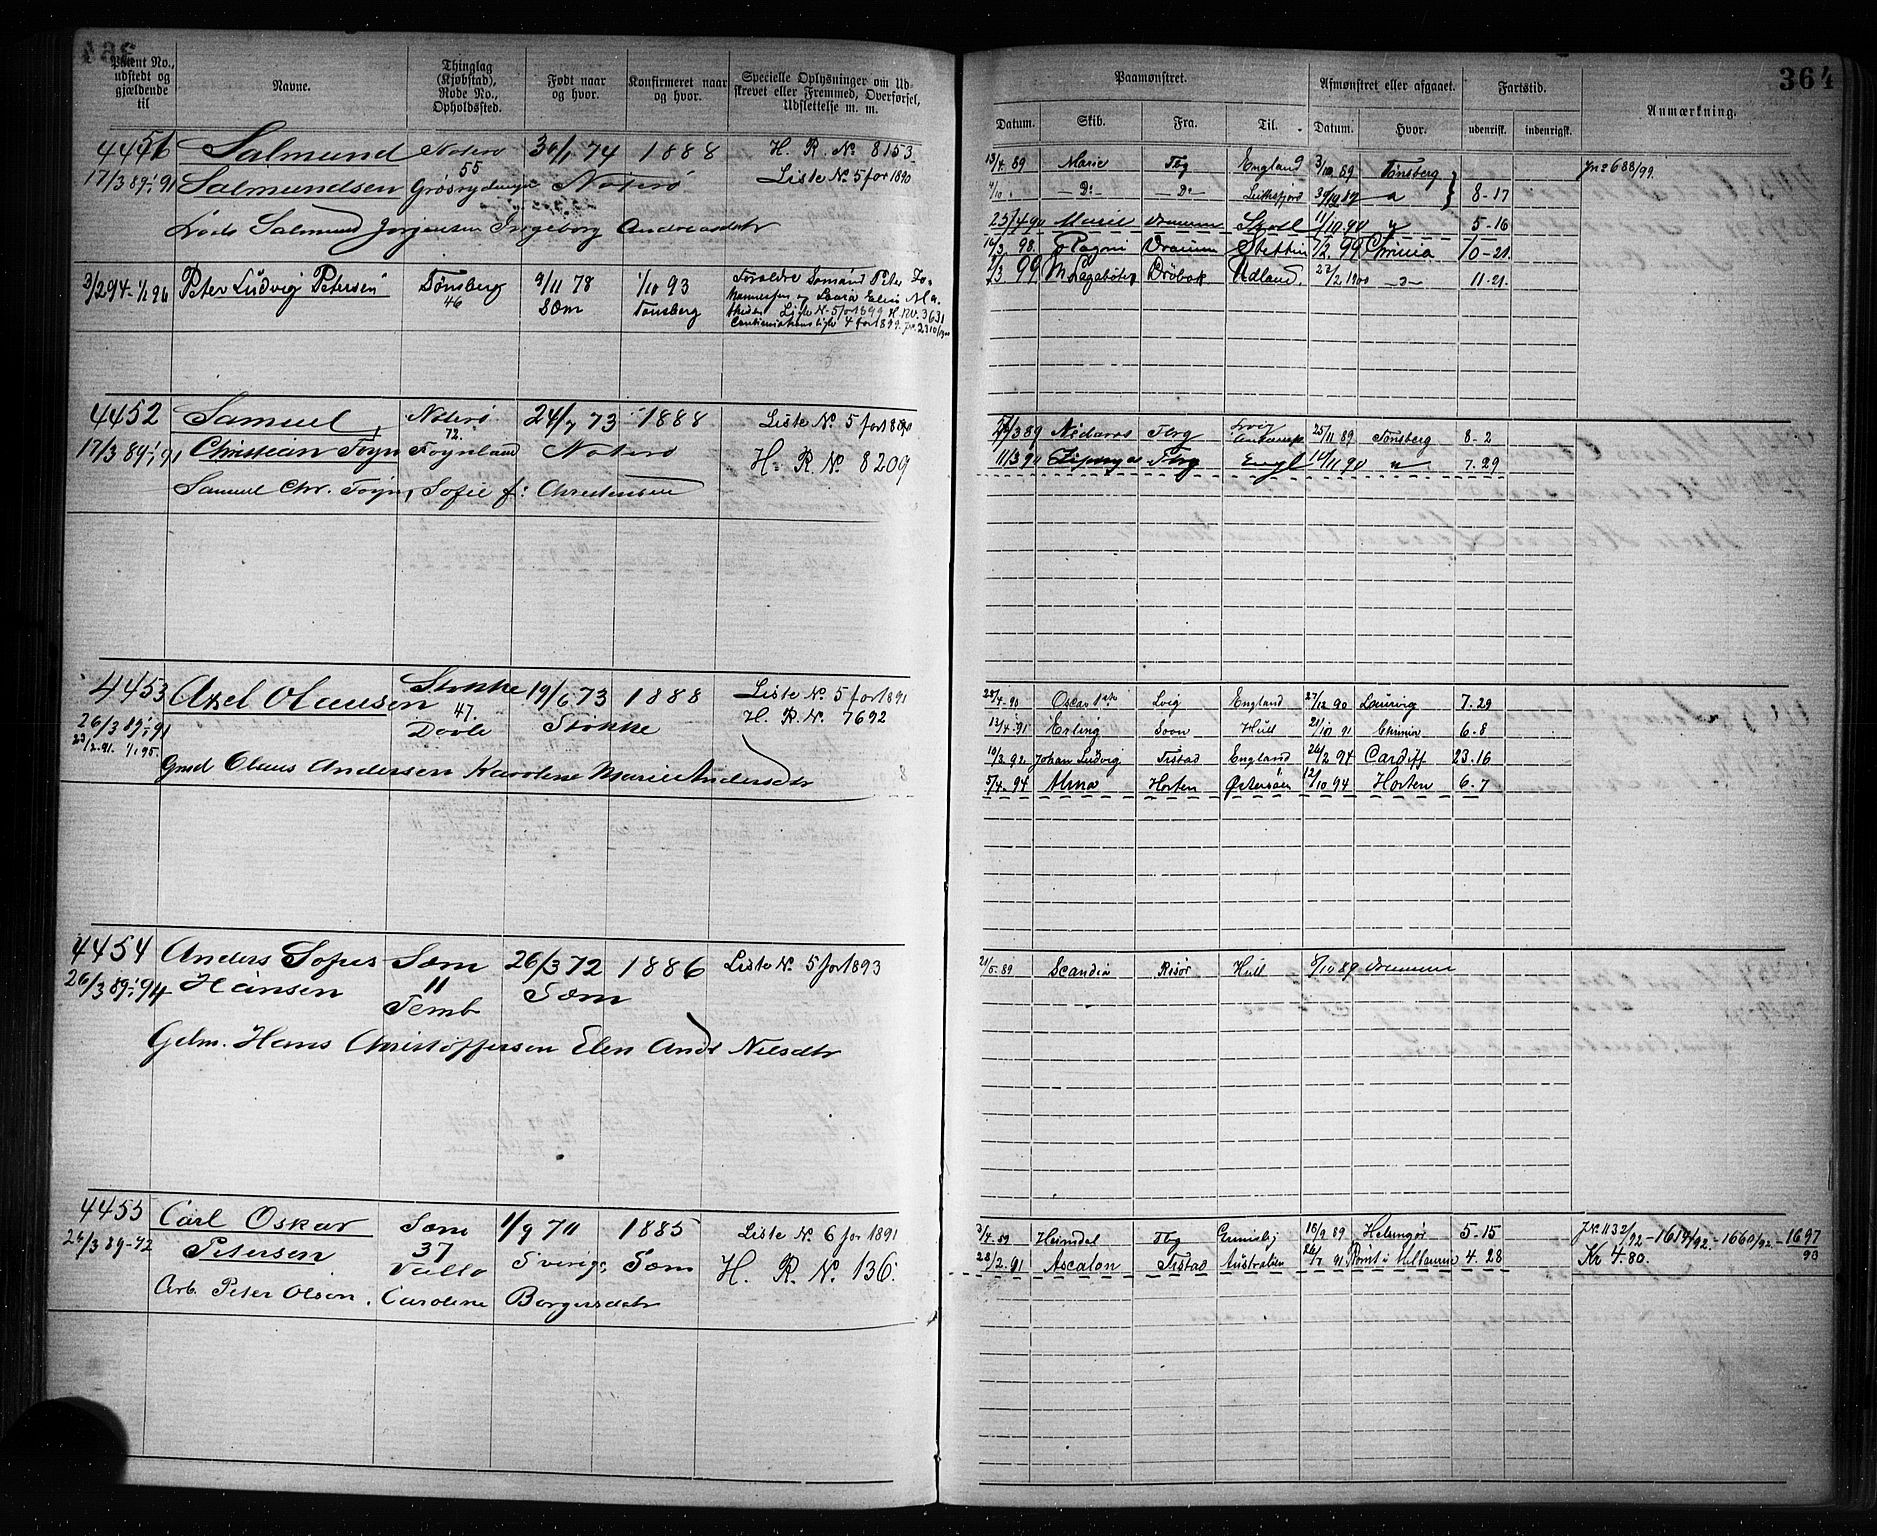 364
Patent No., udstedt og gjældende til
Navne.
Thinglag (Kjøbstad), Rode No., Opholdssted.
Født naar og hvor.
Konfirmeret naar og hvor.
Specielle Oplysninger om Udskrevet eller Fremmed, Overførsel, Udslettelse m. m.
Paamønstret.
Afmønstret eller afgaaet.
Fartstid.
Anmærkning.
Datum. Skib. Fra. Til. Datum. Hvor. udenrigsk. indenrigsk.
4451 Salmund Noterø 30/1 74 1888 H. R. No 8153
17/3 89-1/1 91 Salmundsen 55 Noterø Liste No. 5 for 1890
Lods Salmund Jørgensen Ingeborg Andreasdatr
13/4 89 Marie Tbg England 3/10 89 Tønsberg Jn 688/99
4/10 - Do - - Do - 8-17
25/4 90 Marie Drammen 11/10 90 5-16
16/3 98 Ragni Drammen Stettin 7/2 99 Chrinia 10-21
1/3 99 Drøbak Udland. 27/2 1900 11-21
3/2 94-1/1 96 Peter Ludvig Petersen Tønsberg 9/11 78 1/10 93 Forældre Sømand Peter Jo-
46 Sæm Tønsberg hannesen og Laura Elise Ma-
Liste No 5 for 1899 H. No. 3631
4 for 1899
4452 Samuel Noterø 24/7 73 1888 Liste No. 5 for 1890
17/3 89-1/1 91 Christian Fogn 72. Fognland Noterø H. R. No 8209
Samuel Chr. Fogn, Sofie f: Christensen
3 89 Nidaros Tbrg 25/11 89 Tønsberg 8-2
11/3 90 Tbrg Engl 10/11 90 7-29
4453 Axel Olausen Stokke 19/6 73 1888 Liste No. 5 for 1891
26/3 89-1/1 91 47. Stokke H. R. No. 7692
23/2-91. 1/1 95. Dovle
Gmd Olaus Andersen Karoline Marie Andersdtr
28/4 90 Oscar 1ste Lvig England 27/12 90 Laurvig 7-29
13/4-91 Erling Soon Hull 21/10 91 Chrinia 6-8
10/3 92 Johan Ludvig Frstad England 26/2 94 Cardiff 23-16
5/4-94 Alma Horten Østersøen 12/10 94 Horten 6-7
4454 Anders Sofus Sæm 26/3 72 1886 Liste No. 5 for 1893
26/3 89-1/1 94 Hansen 11 Temb Sæm
Gdm. Hans Christoffersen Elen Andr Nilsdtr
21/5-89 Scandia Risør Hull 8/10 89 Drammen
4455 Carl Oskar Sæm 1/9 70 1885 Liste No. 6 for 1891
26/3 89-92 Petersen 37 Vallø Sverige Sæm H. R. No. 136.
Arb. Peter Olson, Caroline Borgersdatr
3/4 89 Heimdal Tbg Grimsby 18/9 89 Helsingør 5-15 JNo 1132/92-1614/92.-1660/92.-1697/93
28/2.91 Ascalon Frstad Australien 26/7 91 Rømt i Melbourne 4.28 Kr 4.80.